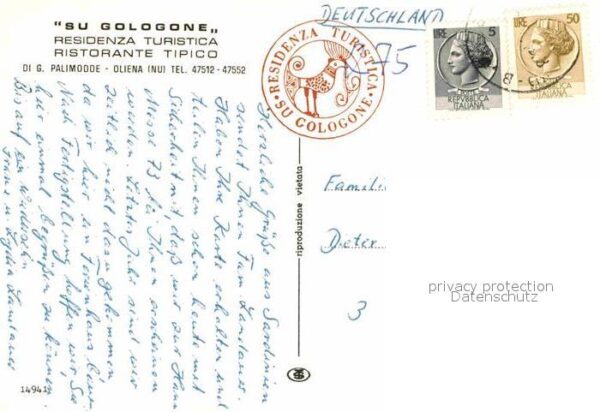 "SU GOLOGONE„
RESIDENZA TURISTICA
RISTORANTE TIPICO
DI G. PALIMODDE - OLIENA (NU) TEL. 47512 - 47552
RESIDENZA TURISTICA
• SU GOLOGONE •
DEUTSCHLAND
75
LIRE 5
REPVBBLICA
ITALIANA
LIRE 50
REPVBBLICA
ITALIANA
Herzliche Grüße aus Sardinien
sendet Ihnen Fam. Landauer
Haben Ihre Karte erhalten und
teilen Ihnen schon heute mit
Sicherheit mit, daß wir zur Hann.
Messe 73 bei Ihnen erscheinen
werden. Letztes Jahr sind wir
zeitlich nicht dazu gekommen
da wir hier ein Ferienhaus bauen.
Nach Fertigstellung hoffen wir, Sie
hier einmal begrüßen zu können.
Bis auf ein Wiedersehn
Franz u. Lydia Landauer
riproduzione vietata
Familie
Dieter
3
privacy protection
Datenschutz
14941